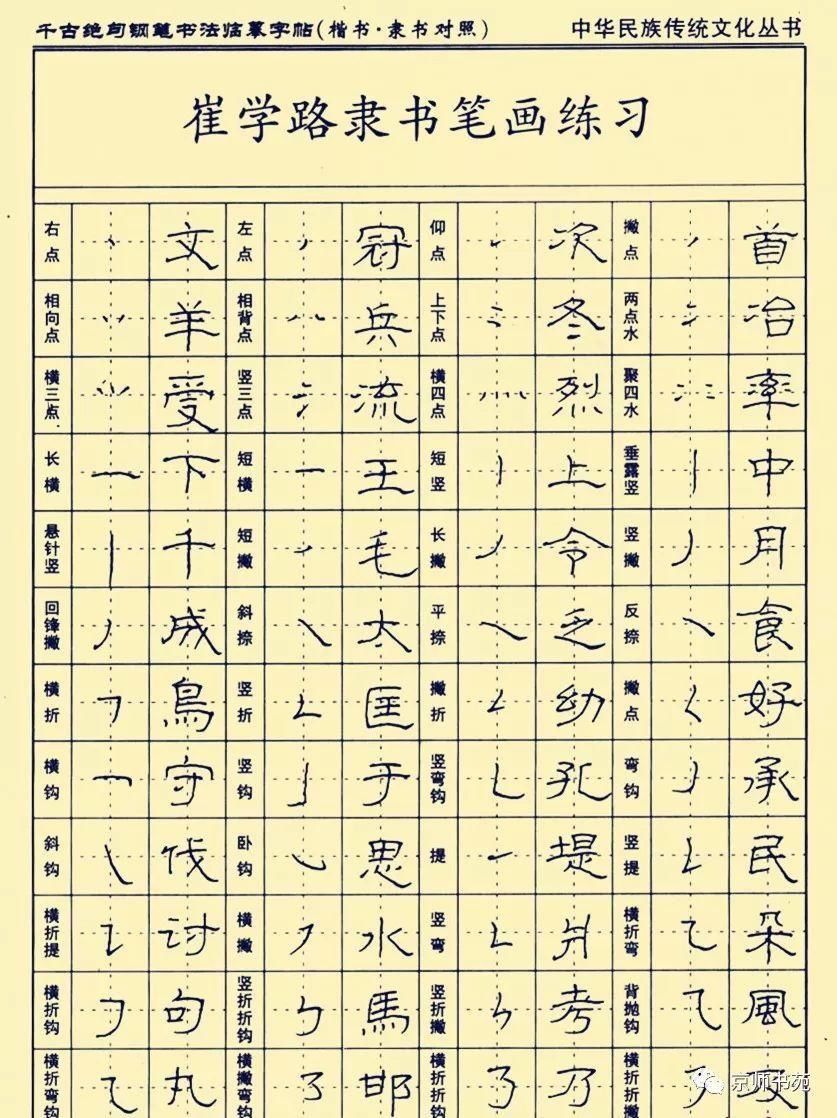 千古绝句钢笔书法临摹字帖(楷书·隶书对照) 中华民族传统文化丛书
崔学路隶书笔画练习
右点 文 左点 冠 仰点 次 撇点 首
相向点 羊 相背点 兵 上下点 冬 两点水 冶
横三点 受 竖三点 流 横四点 烈 聚四水 率
长横 下 短横 王 短竖 上 垂露竖 中
悬针竖 千 短撇 毛 长撇 令 竖撇 月
回锋撇 成 斜捺 太 平捺 乏 反捺 食
横折 鳥 竖折 匡 撇折 幼 撇点 好
横钩 守 竖钩 于 竖弯钩 孔 弯钩 承
斜钩 伐 卧钩 思 提 堤 竖提 民
横折提 讨 横撇 水 竖弯 横折弯 朵
横折钩 句 竖折折钩 馬 竖折撇 考 背抛钩 風
横折弯钩 丸 横撇弯钩 邯 横折折 乃 横折折
京师书苑